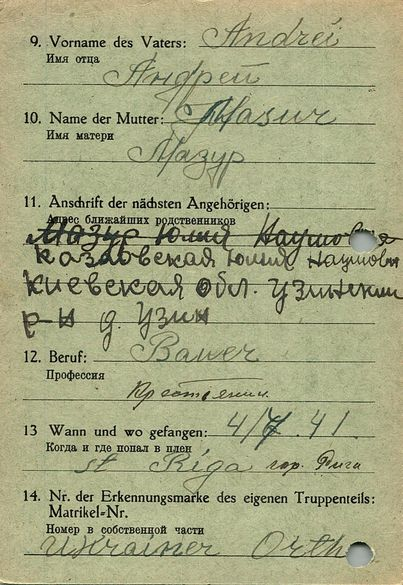 9. Vorname des Vaters: Andrei
Имя отца
Андрей
10. Name der Mutter: Masur
Имя матери
Мазур
11. Anschrift der nächsten Angehörigen:
Адрес ближайших родственников
Мазур Юлия Наумовна
Казловская Юлия Наумовн
Киевская обл. Узински
р-н д. Узин
12. Beruf: Bauer
Профессия
Крестьянин
13 Wann und wo gefangen: 4/7.41.
Когда и где попал в плен
st Riga гор. Рига
14. Nr. der Erkennungsmarke des eigenen Truppenteils:
Matrikel-Nr.
Номер в собственной части
Ukrainer Orth